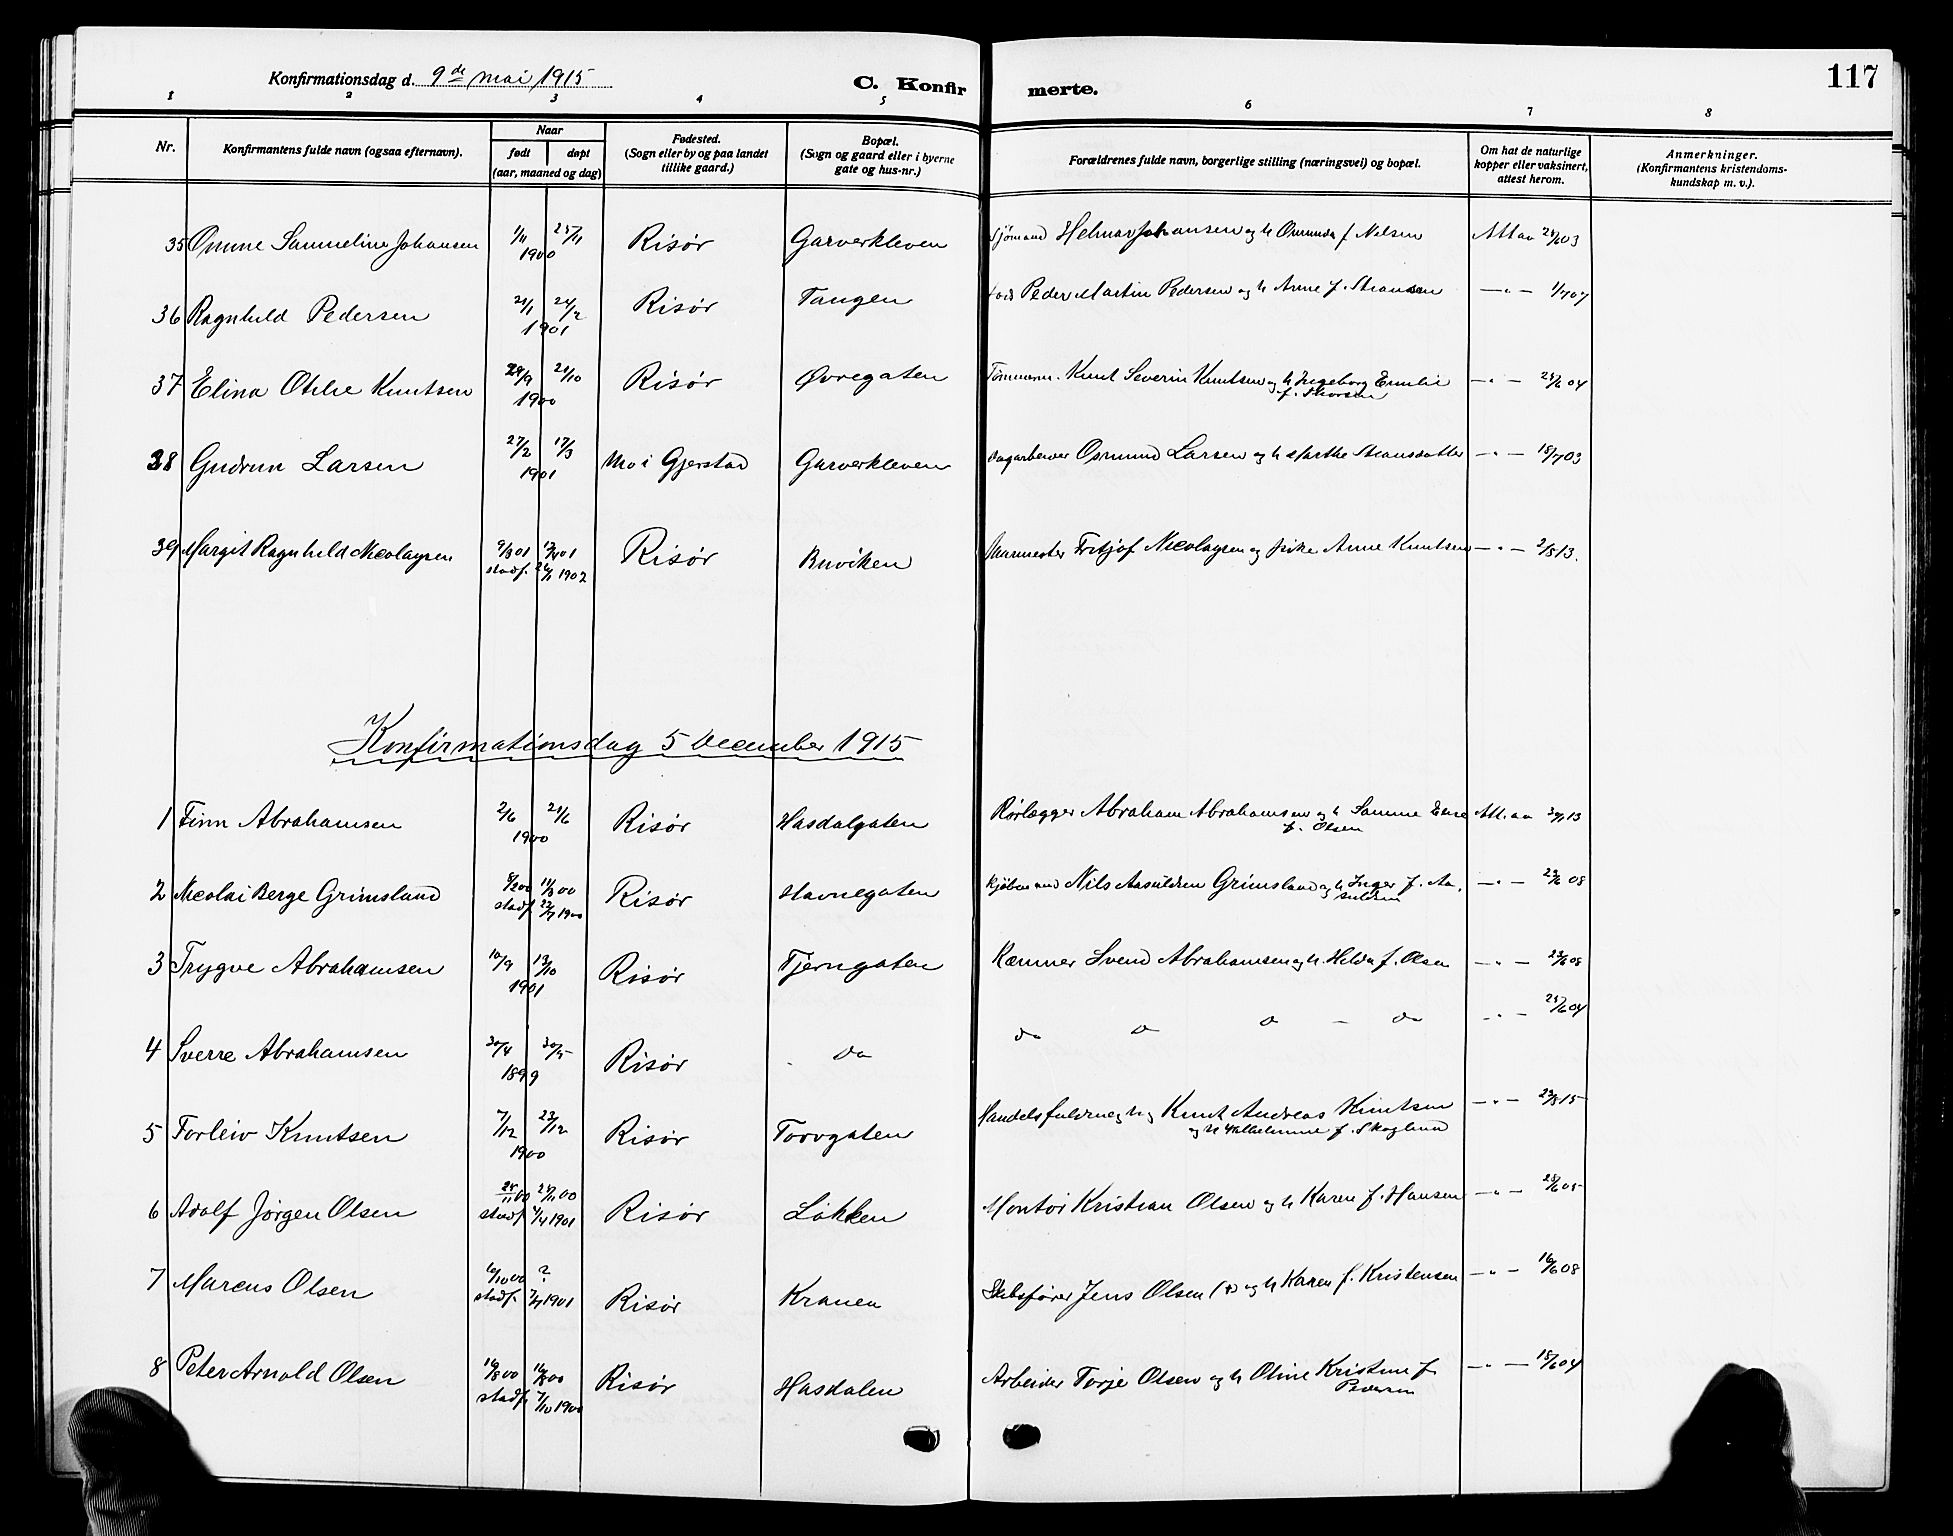 Konfirmationsdag d. 9de mai 1915
C. Konfirmerte.
117
1 2 3 4 5 6 7 8
Nr.
Konfirmantens fulde navn (ogsaa efternavn).
Naar
født | døpt
(aar, maaned og dag)
Fødested.
(Sogn eller by og paa landet
tillike gaard.)
Bopæl.
(Sogn og gaard eller i byerne
gate og hus-nr.)
Forældrenes fulde navn, borgerlige stilling (næringsvei) og bopæl.
Om hat de naturlige
kopper eller vaksinert,
attest herom.
Anmerkninger.
(Konfirmantens kristendoms-
kundskap m. v.).
35 Omine Sammeline Johansen 1/11 25/11 1900 Risør Garverkleven Sjømand Helmar Johansen og h Osmunda f. Nilsen Att av 24/6 03
36 Ragnhild Pedersen 21/1 24/2 1901 Risør Tangen Peder Martin Pedersen og h Anne f. — " — 1/7 07
37 Elina Otilie Knutsen 29/9 21/10 1900 Risør Øvregaten Tømmerm. Knut Severin Knutsen og h Ingeborg Emilie
f. Thorsen — " — 25/6 04
38 Gudrun Larsen 27/2 17/3 1901 Mo i Gjerstad Garverkleven Dagarbeider Osmund Larsen og h Marthe — " — 18/7 03
39 Margit Ragnhild Nicolaysen 9/3 01 stadf. 1902 Risør Buviken Murmester Fritjof Nicolaysen og pike Anne Knutsen — " — 2/5 13.
Konfirmationsdag 5 December 1915
1 Finn Abrahamsen 2/6 24/6 1900 Risør Hasdalgaten Rørlægger Abraham Abrahamsen og h Samme Elise
f. Olsen Att. av 13
2 Nicolai Berge Grimsland 8/2 00 11/3 00 stadf. 1900 Risør Havnegaten Kjøbmand Nils Aasuldsen Grimsland og h Inger f. Aa-
suldsen — " — 08
3 Trygve Abrahamsen 10/9 13/10 1901 Risør Tjerngaten Kæmner Svend Abrahamsen og h. Helda f. Olsen — " — 23/6 08
4 Sverre Abrahamsen 30/4 30/5 1899 Risør do do o o — do — " — 25/6 04
5 Torleiv Knutsen 7/12 23/12 1900 Risør Torvgaten Handelsfuldmegtig Knut Andreas Knutsen
og h Valhelmine f. Skoglund — " — 15
6 Adolf Jørgen Olsen 11 00 11 00 stadf. 1/4 1901 Risør Løkken Montør Kristian Olsen og h Karen f. Hansen — " — 05
7 Marcus Olsen 10 00 ? stadf. 1901 Risør Kranen Skibsfører Jens Olsen (+) og h Karen f. Kristensen — " — 16/6 08
8 Peter Arnold Olsen 16/8 00 16/8 00 stadf. 7/10 1900 Risør Hasdalen Arbeider Torje Olsen og h Oline Kristine f.
Pedersen — " — 18/6 04